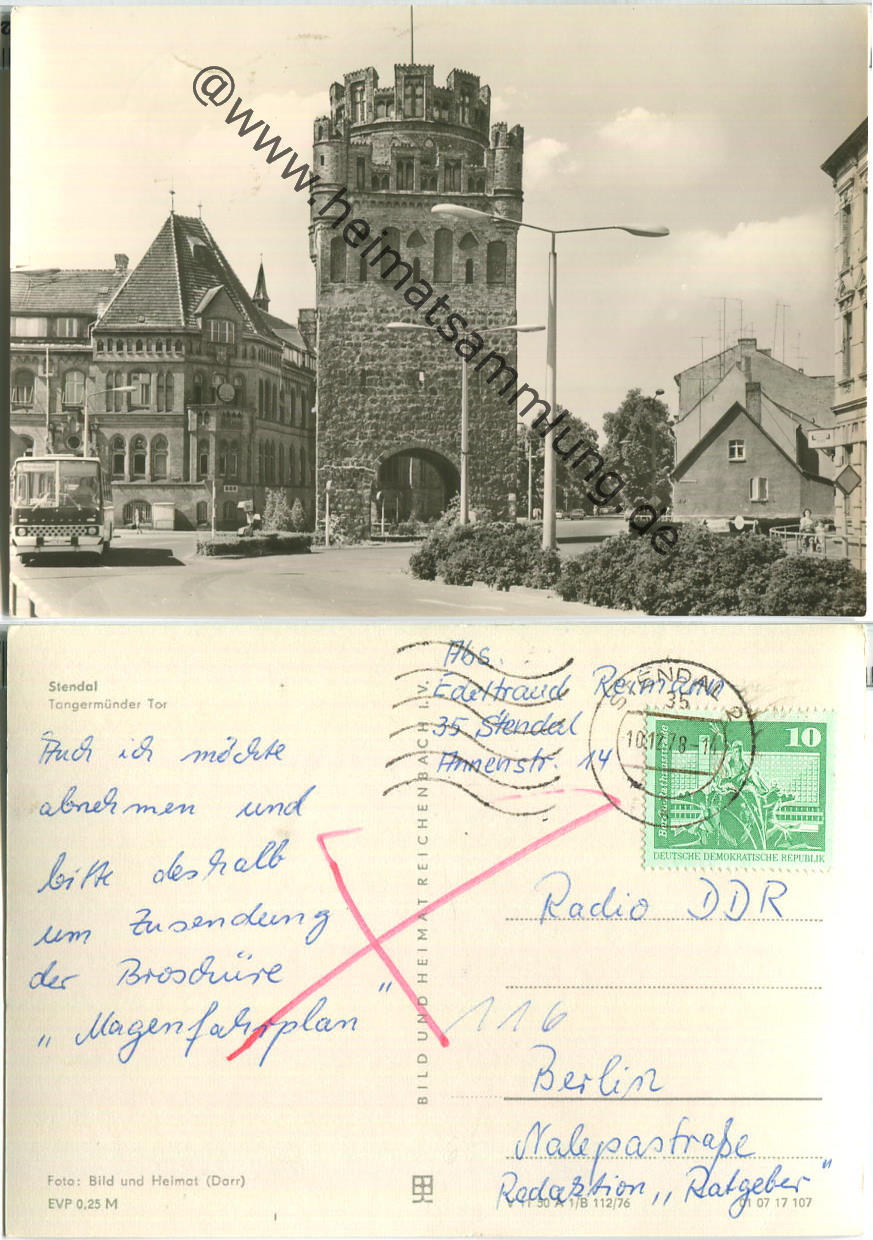 @www.heimatsammlung.de
Stendal
Tangermünder Tor
Auch ich möchte
abnehmen und
bitte deshalb
um Zusendung
der Broschüre
„Magenfahrplan"
Foto: Bild und Heimat (Darr)
EVP 0,25 M
BILD UND HEIMAT REICHENBACH I.V.
Abs.
Edeltraud Reimann
35 Stendal
Annenstr. 14
STENDAL 2
35
10.12.78-14
10
DEUTSCHE DEMOKRATISCHE REPUBLIK
Radio DDR
116
Berlin
Nalepastraße
Redaktion „Ratgeber"
V 11 50 A 1/B 112/76
01 07 17 107